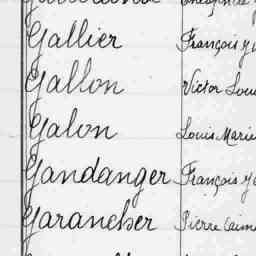 Gallier François
Gallon Victor Loui
Galon Louis Marie
Gandanger François
Garancher Pierre